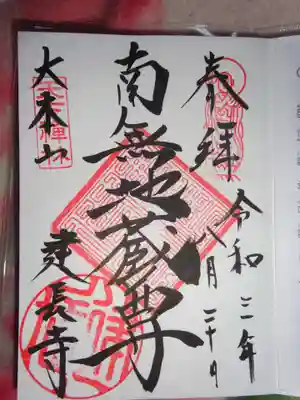 奉拝
令和三年
八月三十日
南無地蔵尊
大本山
建長寺